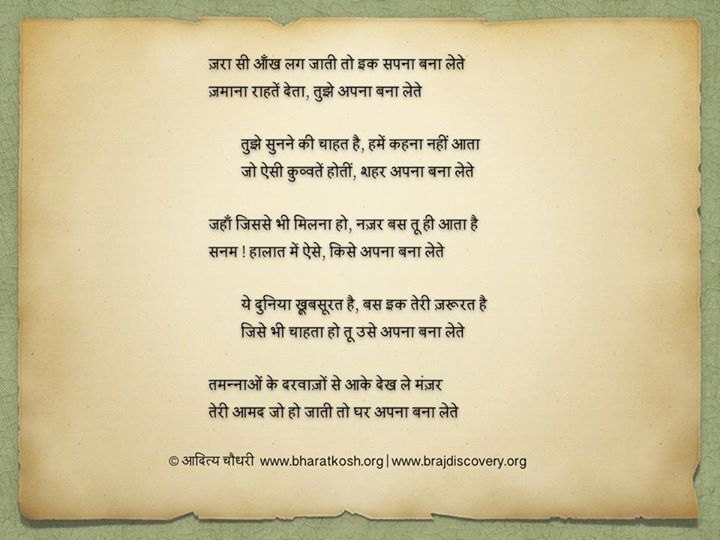 ज़रा सी आँख लग जाती तो इक सपना बना लेते
ज़माना राहतें देता, तुझे अपना बना लेते
तुझे सुनने की चाहत है, हमें कहना नहीं आता
जो ऐसी क़ुव्वतें होतीं, शहर अपना बना लेते
जहाँ जिससे भी मिलना हो, नज़र बस तू ही आता है
सनम ! हालात में ऐसे, किसे अपना बना लेते
ये दुनिया ख़ूबसूरत है, बस इक तेरी ज़रूरत है
जिसे भी चाहता हो तू उसे अपना बना लेते
तमन्नाओं के दरवाज़ों से आके देख ले मंज़र
तेरी आमद जो हो जाती तो घर अपना बना लेते
© आदित्य चौधरी www.bharatkosh.org|www.brajdiscovery.org